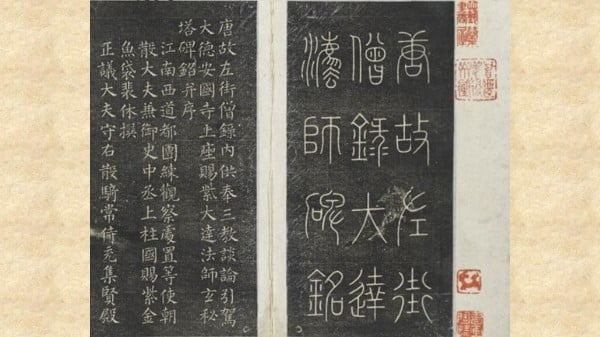 唐故左街
僧錄大達
灋師碑銘
唐故左街僧錄內供奉三教談論引駕
大德安國寺上座賜紫大達法師玄秘
塔碑銘并序
江南西道都團練觀察處置等使朝
散大夫兼御史中丞上柱國賜紫金
魚袋裴休撰
正議大夫守右散騎常侍充集賢殿